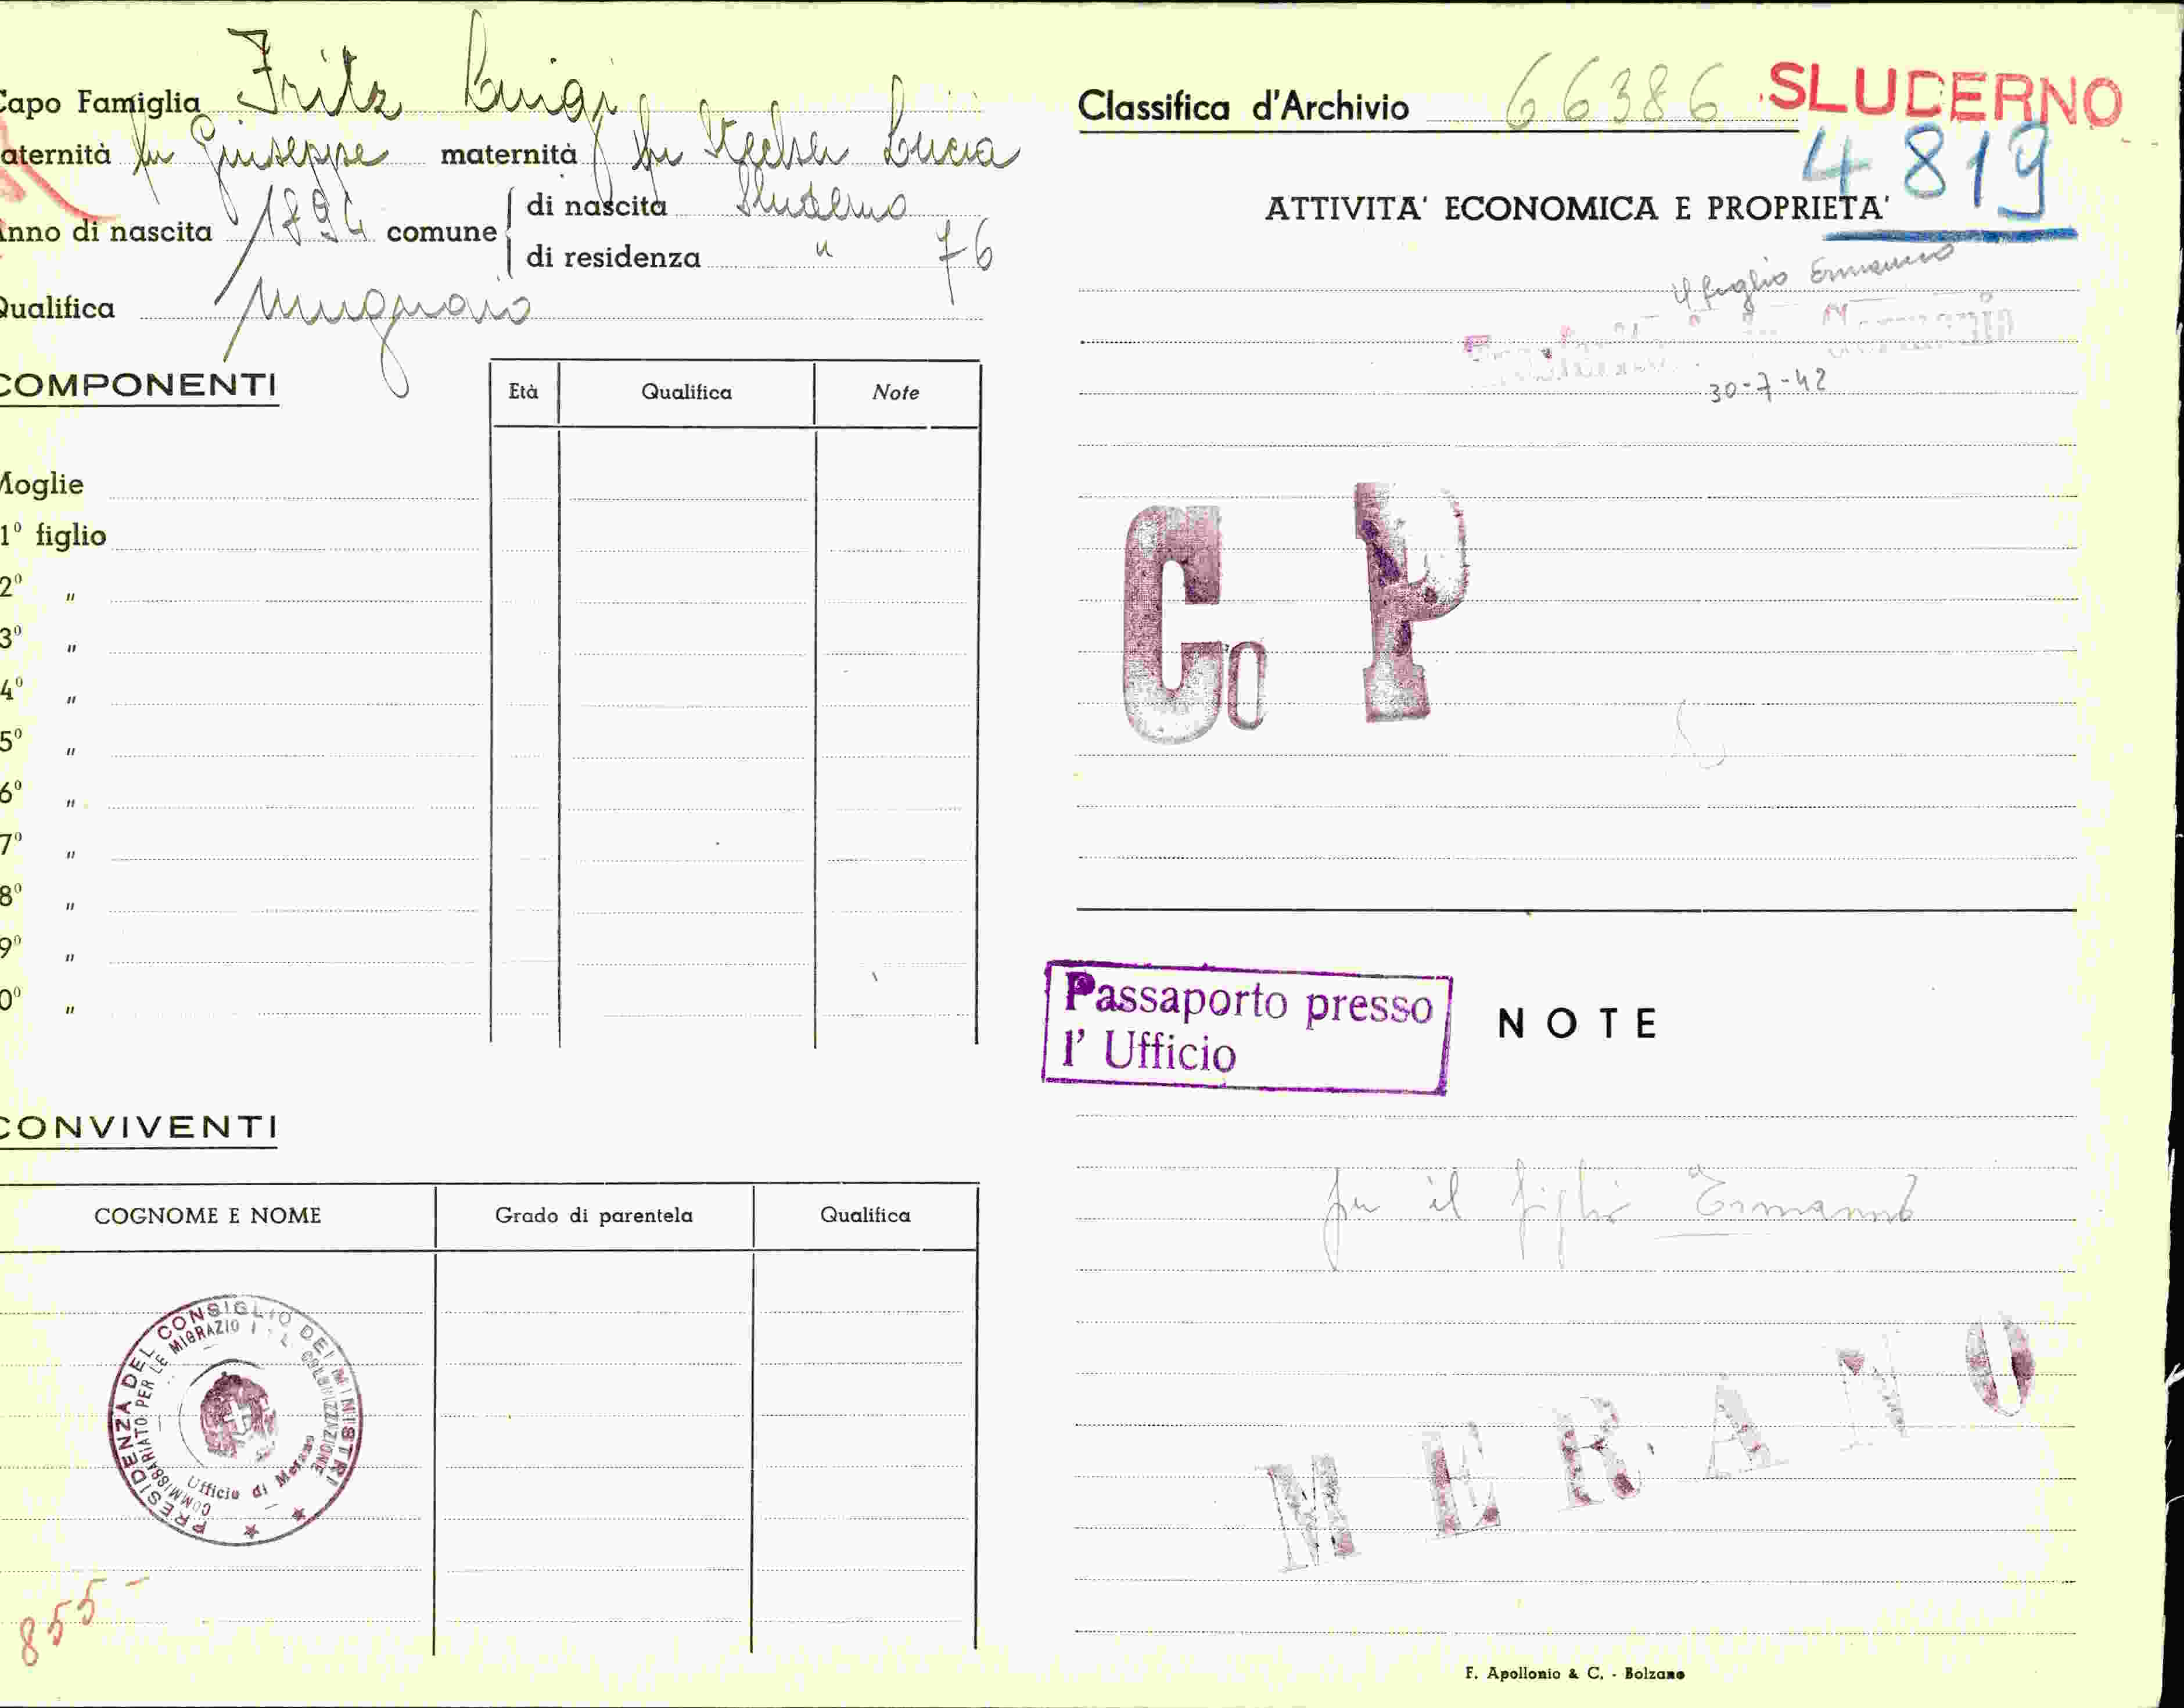 Capo Famiglia Fritz Luigi
aternità fu Giuseppe maternità fu Stecher Lucia
Anno di nascita 1894 comune di nascita Sluderno
di residenza " 76
Qualifica Mugnaio
COMPONENTI
Età Qualifica Note
Moglie
1º figlio
2º "
3º "
4º "
5º "
6º "
7º "
8º "
9º "
0º "
CONVIVENTI
COGNOME E NOME Grado di parentela Qualifica
PRESIDENZA DEL CONSIGLIO DEI MINISTRI
COMMISSARIATO PER LE MIGRAZIO E L COLONIZZAZIONE
Ufficio di Merano
855 -
Classifica d'Archivio 66386 SLUDERNO
4819
ATTIVITA' ECONOMICA E PROPRIETA'
Il figlio Ermanno
Germania
30-7-42
Co P
Passaporto presso
l' Ufficio
NOTE
per il figlio Ermanno
MERANO
F. Apollonio & C. - Bolzano